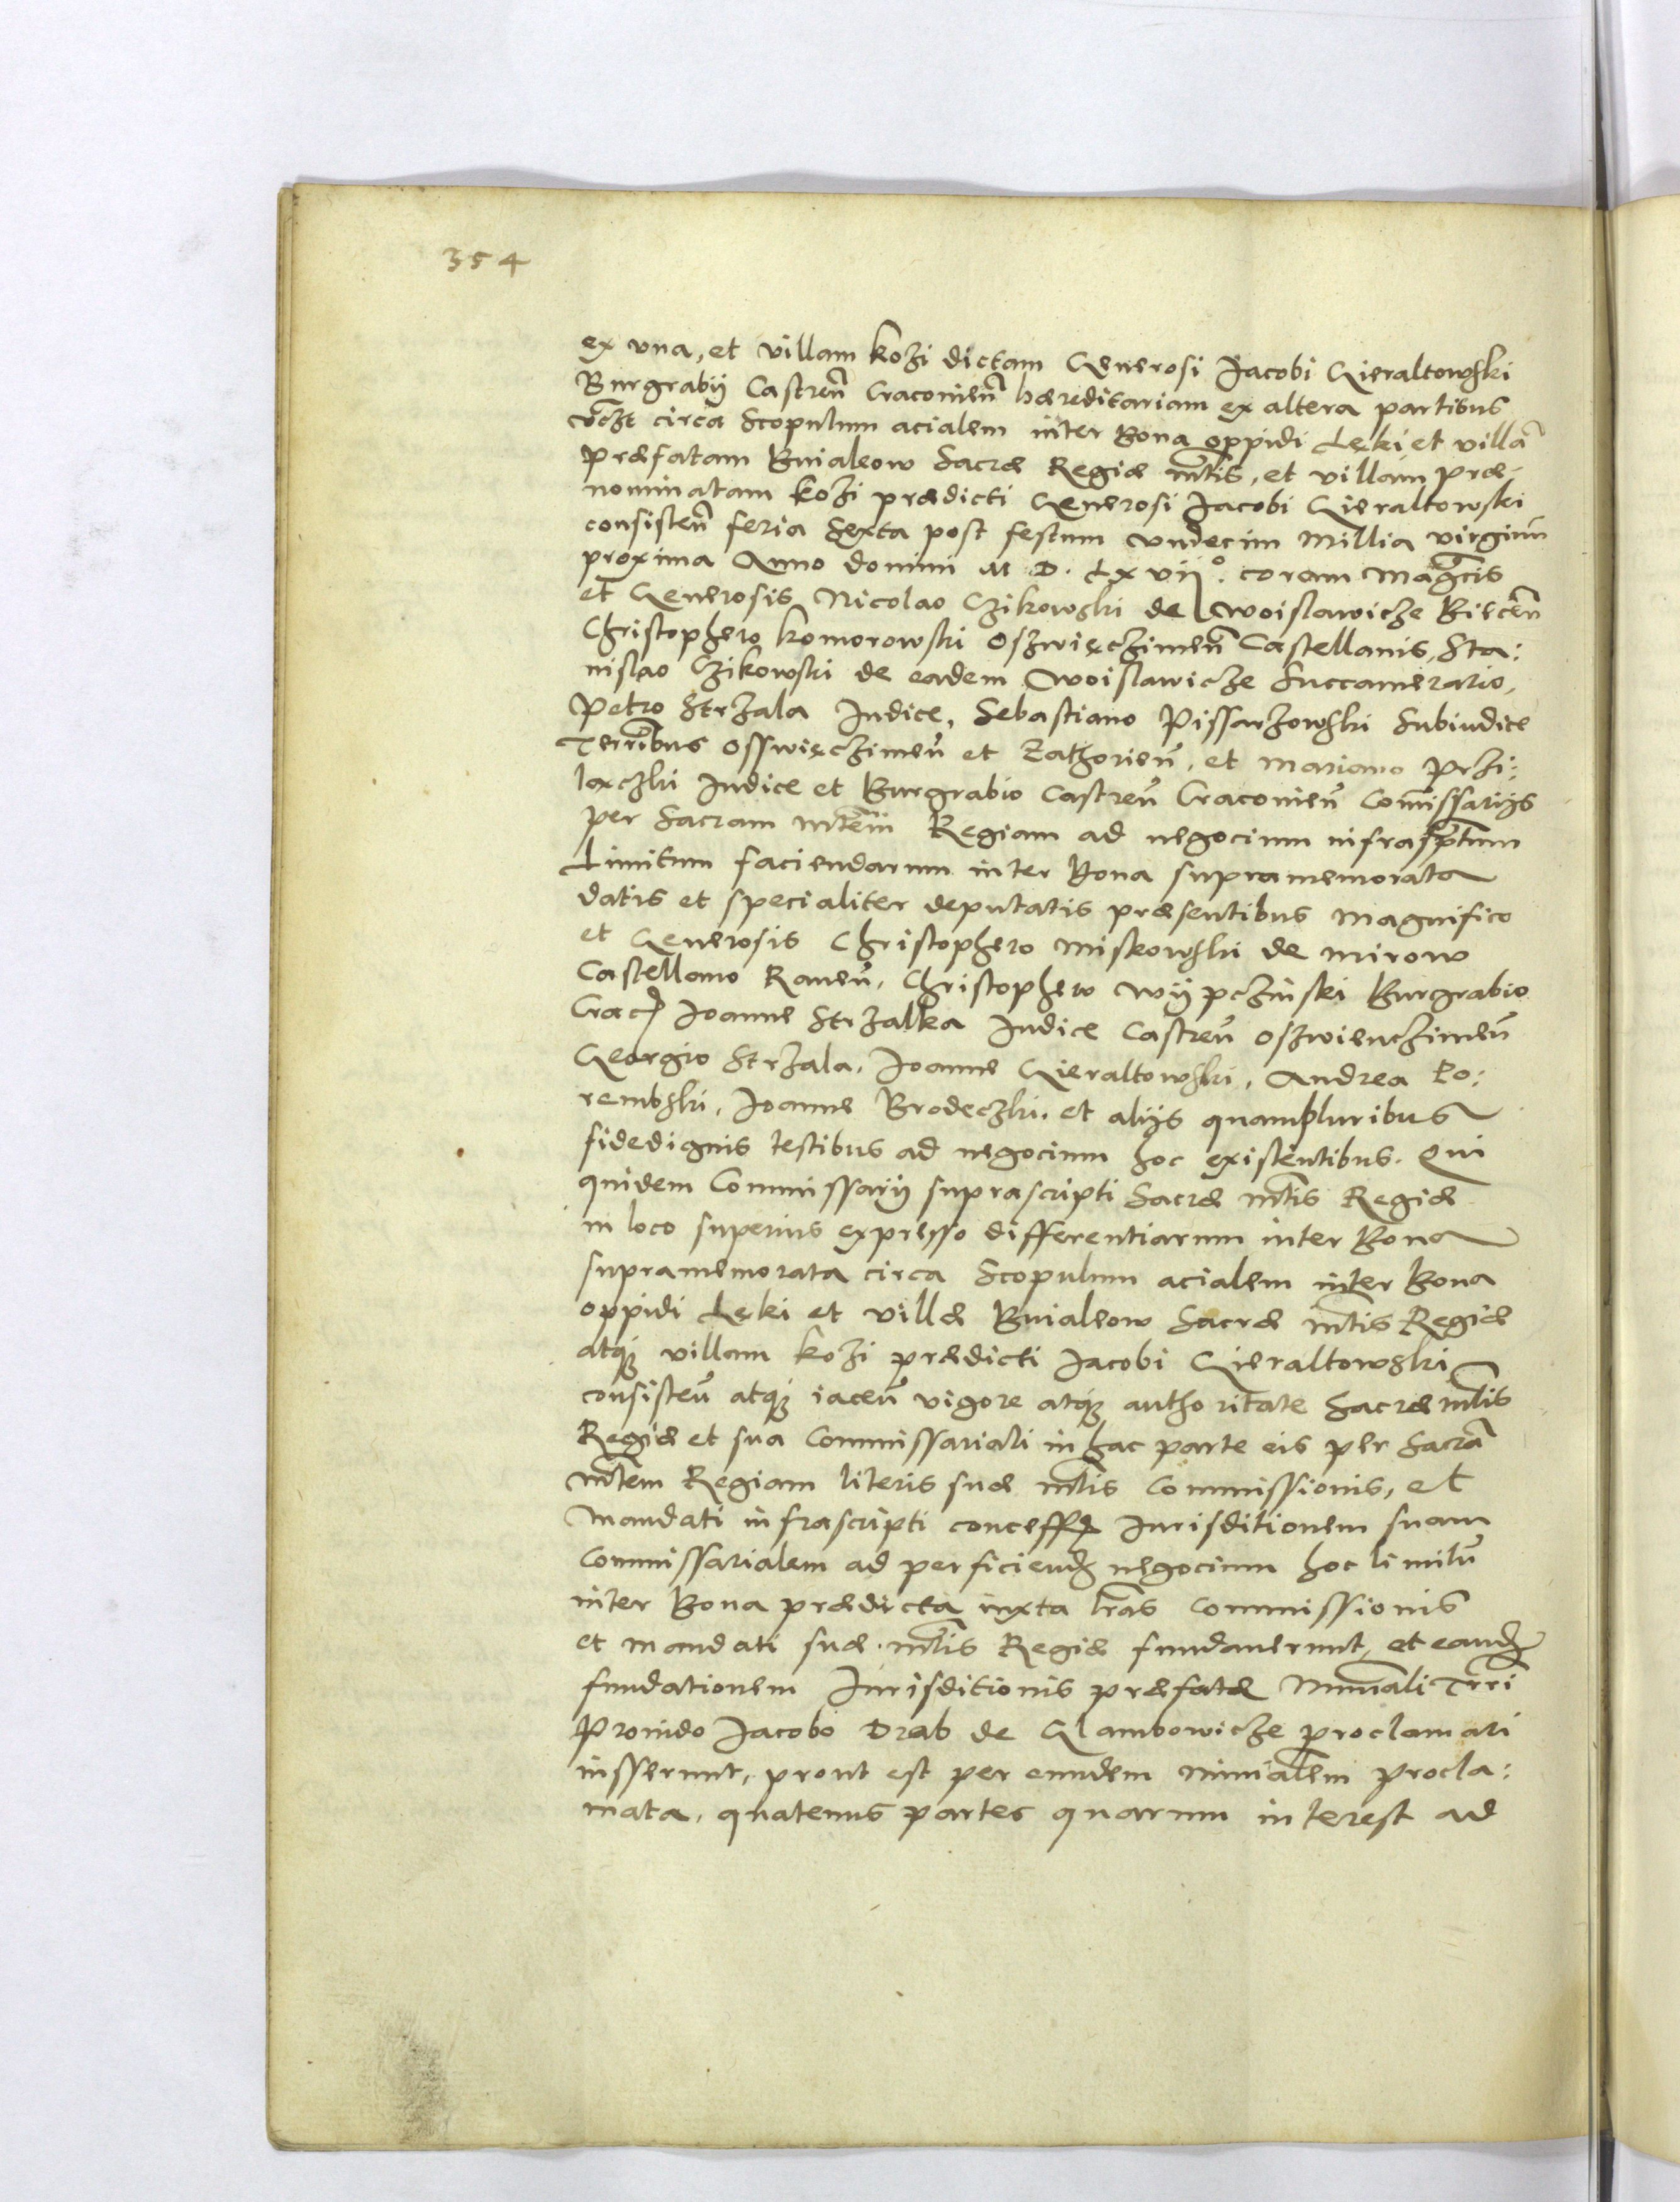 354
ex vna, et villam Kozi dictam Generosi Jacobi Gieraltowski
Burgrabij Castren̄ Cracovien̄ hæreditariam ex altera partibus
circa Scopulum acialem inter Bona oppidi Lęki et villā
præfatam Buiakow Sacræ Regiæ mt̄is, et villam præ-
nominatam Kozi prædicti Generosi Jacobi Gieraltowski
consisten̄ feria Sexta post festum vndecim Millia virginū
proxima Anno domini M. D. Lxvij°. coram Magc̄is
et Generosis Nicolao Czikowski de Woislawicze Biecen̄
Christophero Komorowski Oszwięczimen̄ Castellanis, Sta:
nislao Czikowski de eadem Woislawicze Succamerario,
Petro Strzala Judice, Sebastiano Pissarzowski Subiudice
Terrībus Osswięczimen̄ et Zathorien̄, et Mariano Przi:
lęczki Judice et Burgrabio Castren̄ Cracovien̄ Com̄issarijs
per Sacram mt̄em Regiam ad negocium infrasp̄tum
Limitum faciendarum inter Bona supramemorata
datis et specialiter deputatis præsentibus Magnifico
et Generosis Christophero Miskowski de Mirow
Castellano Raven̄, Christophero Wijpczinski Burgrabio
Crac: Joanne Strzalka Judice Castren̄ Oszwienczimen̄
Georgio Strzala, Joanne Gieraltowski, Andrea Po:
rembski, Joanne Brodeczki, et alijs quampluribus
fidedignis testibus ad negocium hoc existentibus. Qui
quidem Commissarij suprascripti Sacræ mt̄is Regiæ
in loco superius expresso differentiarum inter Bona
supramemorata circa Scopulum acialem inter Bona
oppidi Lęki et villæ Buiakow Sacræ mt̄is Regiæ
atq; villam Kozi prædicti Jacobi Gieraltowski
consisten̄ atq; iacen̄ vigore atq; authoritate Sacræ mt̄is
Regiæ et sua Commissariali in hac parte eis per Sacrā
mt̄em Regiam literis suæ mt̄is Commissionis, et
Mandati infrascripti concessa Jurisditionem suam
Commissarialem ad perficiend negocium hoc limitū
inter Bona prædicta iuxta lr̄as Commissionis
et mandati suæ mt̄is Regiæ fundaverunt, et eand
fundationem Jurisditionis præfatæ Minīali Terrī
Provido Jacobo Drab de Glambowicze proclamari
iusserunt, prout est per eundem minīalem procla:
mata, quatenus partes quarum interest ad